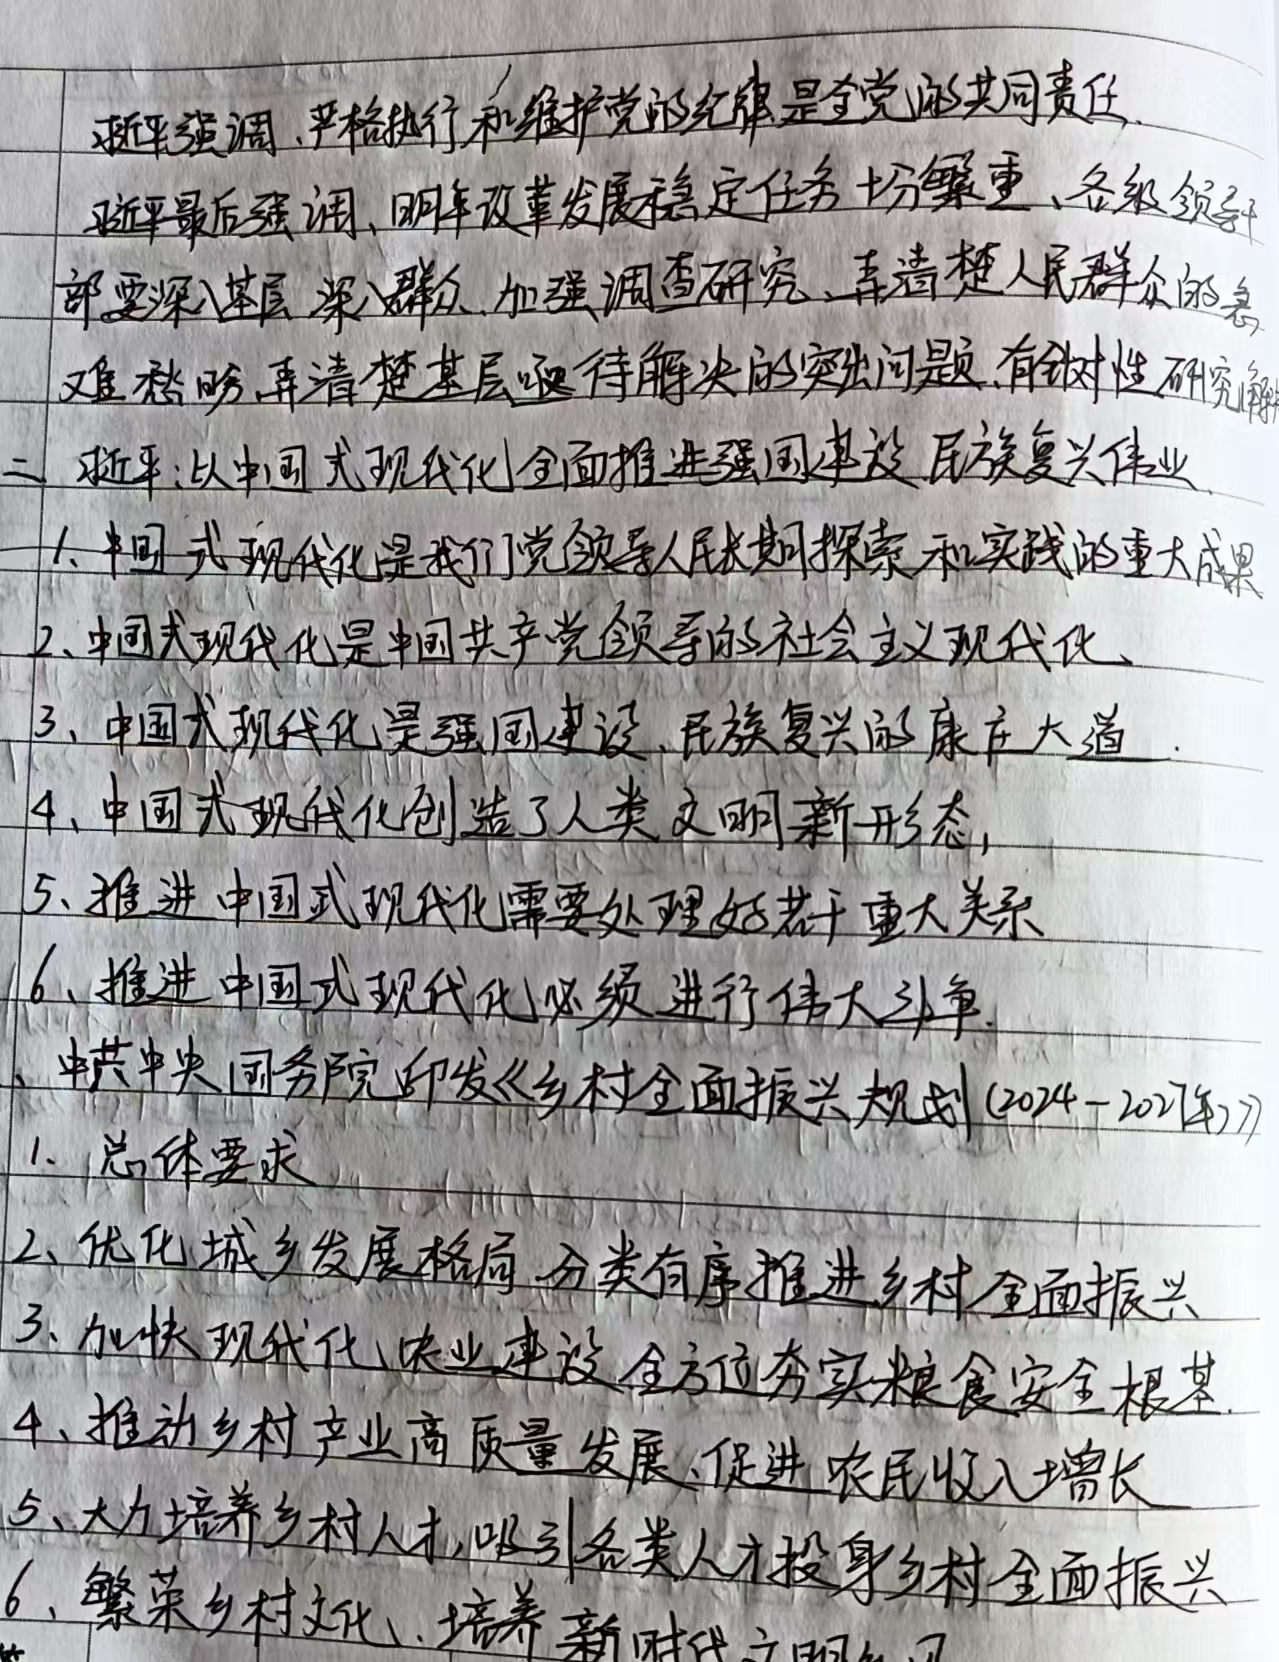 习近平强调、严格执行和维护党的纪律是全党的共同责任.
习近平最后强调、明年改革发展稳定任务十分繁重、各级领导干
部要深入基层 深入群众、加强调查研究、弄清楚人民群众的急
难愁盼、弄清楚基层亟待解决的突出问题、有针对性研究解
二 习近平：以中国式现代化全面推进强国建设 民族复兴伟业.
1、中国式现代化是我们党领导人民长期探索和实践的重大成果
2、中国式现代化是中国共产党领导的社会主义现代化、
3、中国式现代化是强国建设、民族复兴的康庄大道.
4、中国式现代化创造了人类文明新形态,
5、推进中国式现代化需要处理好若干重大关系
6、推进中国式现代化必须进行伟大斗争.
、中共中央 国务院印发《乡村全面振兴规划(2024-2027年)》
1、总体要求
2、优化城乡发展格局 分类有序推进乡村全面振兴
3、加快现代化农业建设 全方位夯实粮食安全根基.
4、推动乡村产业高质量发展、促进农民收入增长
5、大力培养乡村人才,吸引各类人才投身乡村全面振兴
6、繁荣乡村文化、培养新时代文明